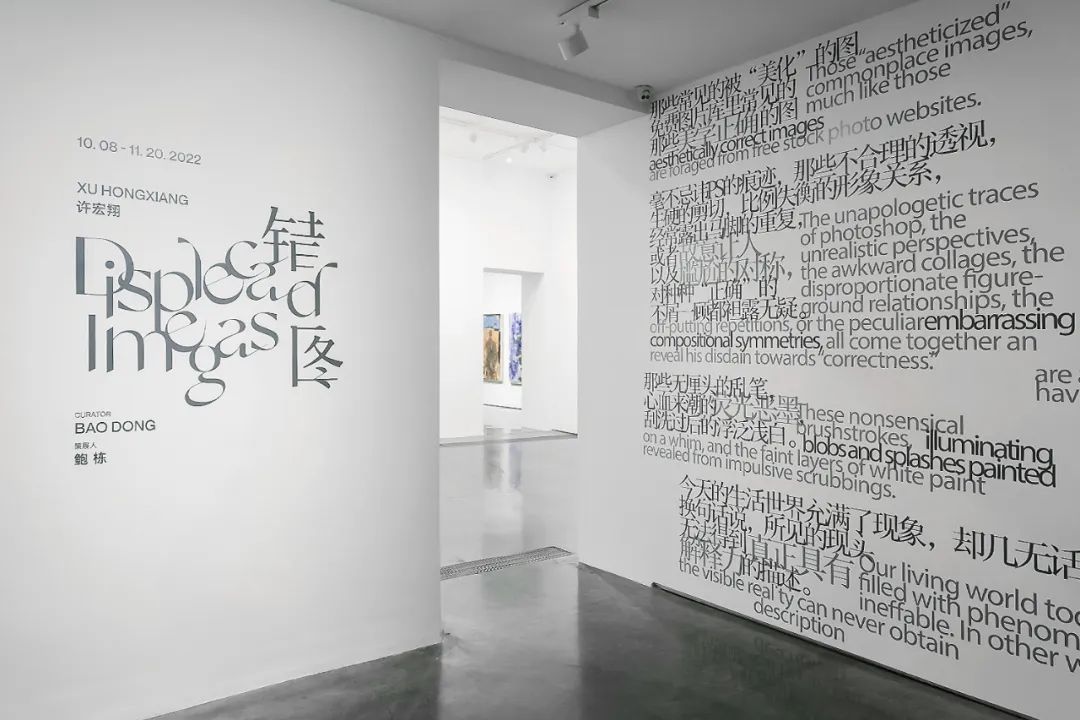 10. 08 - 11. 20. 2022
XU HONGXIANG
许宏翔
错
Displecaad
Imegas
图
CURATOR
BAO DONG
策展人
鲍 栋
那些常见的被“美化”的图
免费图片库里常见的
那些美学正确的图
Those “aestheticized”
commonplace images,
much like those
aesthetically correct images
are foraged from free stock photo websites.
毫不忌讳PS的痕迹，那些不合理的透视，
生硬的剪切，比例失衡的形象关系，
经常露出马脚的重复，
或有故意让人
以及尴尬的对称，
对种种“正确”的
不屑一顾都袒露无疑。
The unapologetic traces
of photoshop, the
unrealistic perspectives,
the awkward collages, the
disproportionate figure-
ground relationships, the
off-putting repetitions, or the peculiar embarrassing
compositional symmetries, all come together an
reveal his disdain towards “correctness.”
are
hav
那些无厘头的乱笔，
心血来潮的反光恶墨
刮洗过后的浮泛浅白。
These nonsensical
brushstrokes, illuminating
blobs and splashes painted
on a whim, and the faint layers of white paint
revealed from impulsive scrubbings.
今天的生活世界充满了现象，却几无话
换句话说，所见的现头
无法得到真正具有
解释力的描述。
Our living world too
filled with phenom
ineffable. In other w
the visible reality can never obtain
description